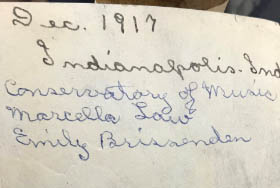 Dec. 1917
Indianapolis. Ind
Conservatory of Music
Marcella Law
Emily Brissenden